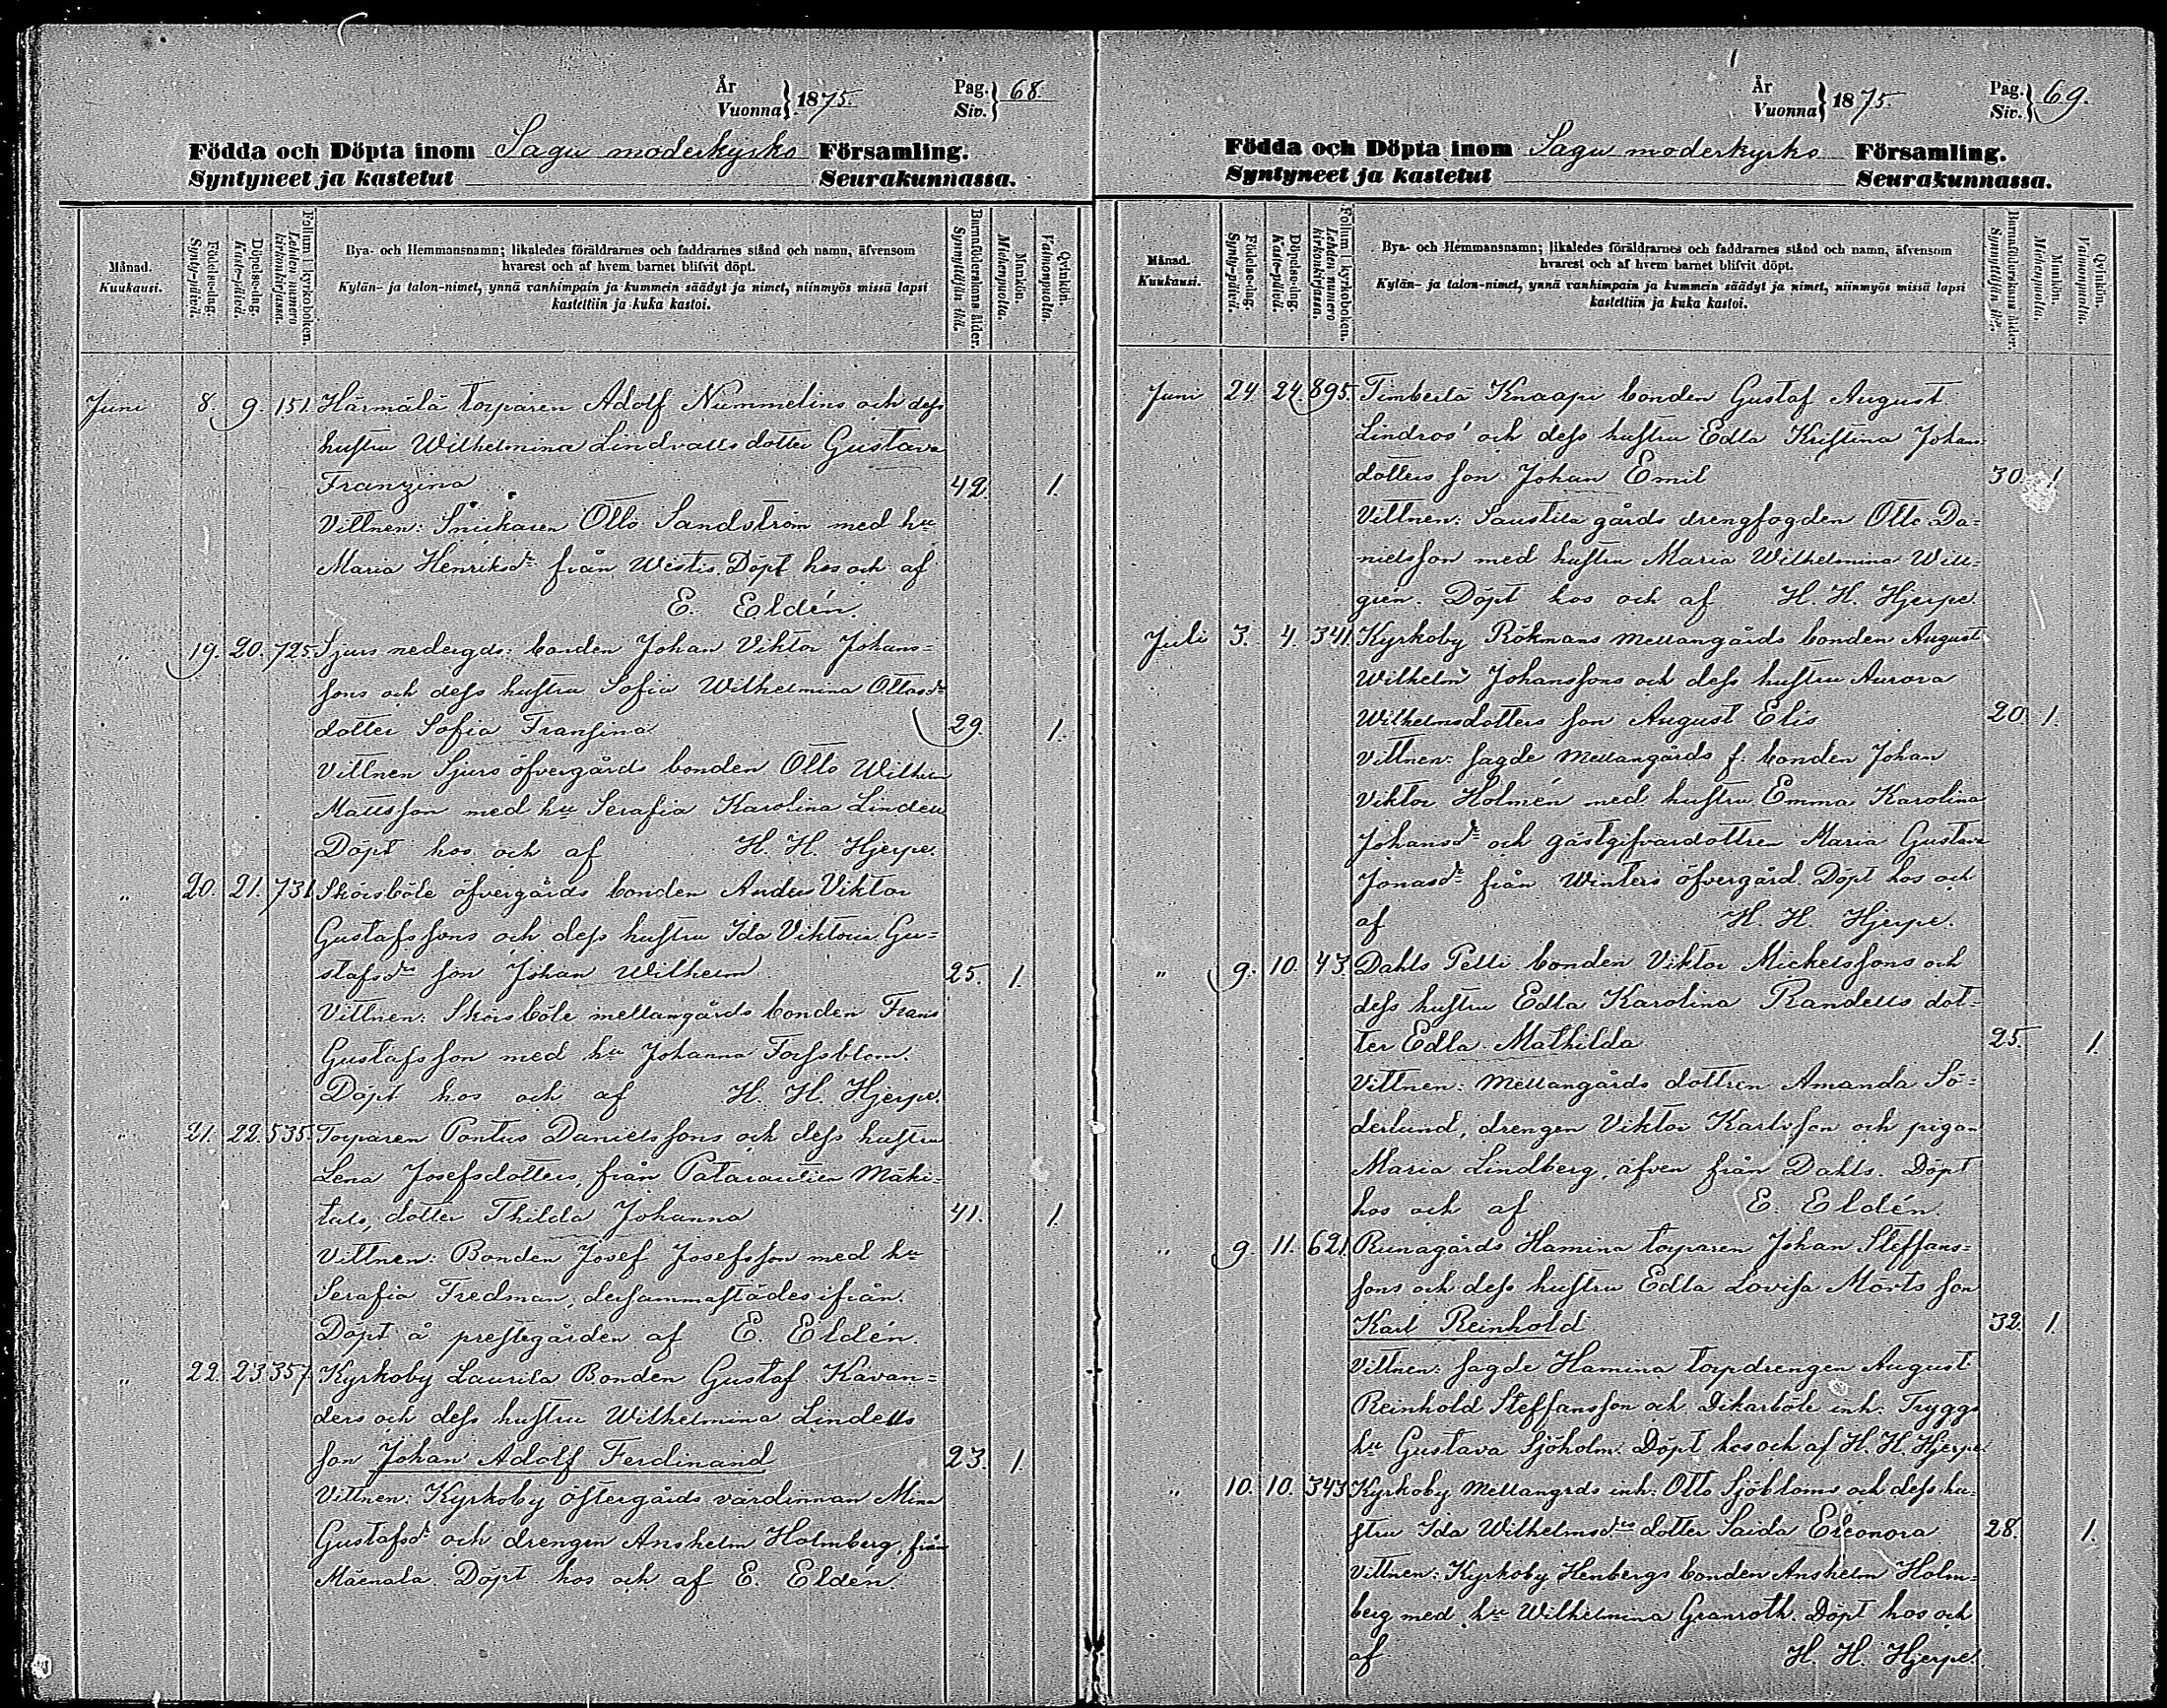 År
Vuonna } 1875.
Pag.
Siv. } 68.
Födda och Döpta inom Sagu moderkyrko Församling.
Syntyneet ja kastetut Seurakunnassa.
Månad.
Kuukausi.
Födelse-dag.
Synty-päivä.
Döpelse-dag.
Kaste-päivä.
Folium i kyrkoboken.
Lehden numero kirkonkirjassa.
Bya- och Hemmansnamn; likaledes föräldrarnes och faddrarnes stånd och namn, äfvensom
hvarest och af hvem barnet blifvit döpt.
Kylän- ja talon-nimet, ynnä vanhimpain ja kummein säädyt ja nimet, niinmyös missä lapsi
kastettiin ja kuka kastoi.
Barnaföderskans ålder.
Synnyttäjän ikä.
Mankön.
Miehenpuolia.
Qvinkön.
Vaimonpuolia.
Juni 8. 9. 151. Härmälä torparen Adolf Nummelins och dess
hustru Wilhelmina Lindvalls dotter Gustava
Franzina 42. 1.
Vittnen: Snickaren Otto Sandström med hu
Maria Henriksdr från Westis. Döpt hos och af
E. Eldén.
" 19. 20. 725. Sjurs nedergds: bonden Johan Viktor Johans=
sons och dess hustru Sofia Wilhelmina Ottosdr
dotter Sofia Fransina 29. 1.
Vittnen Sjurs öfvergårds bonden Otto Wilhelm
Mattsson med hu Serafia Karolina Lindell
Döpt hos och af H. H. Hjerpe.
" 20. 21. 731 Skörsböle öfvergårds bonden Anders Viktor
Gustafssons och dess hustru Ida Viktoria Gu=
stafsdrs son Johan Wilhelm 25. 1.
Vittnen: Skörsböle mellangårds bonden Frans
Gustafsson med hu Johanna Forssblom.
Döpt hos och af H. H. Hjerpe.
" 21. 22. 535. Torparen Pontus Danielssons och dess hustru
Lena Josefsdotters, från Pataraution Mäki=
talo, dotter Thilda Johanna 41. 1.
Vittnen: Bonden Josef Josefsson med hu
Serafia Fredman, dersammastädes ifrån.
Döpt å prestegården af E. Eldén.
" 22. 23 357. Kyrkoby Laurila Bonden Gustaf Kavan=
ders och dess hustru Wilhelmina Lindells
son Johan Adolf Ferdinand 23. 1.
Vittnen: Kyrkoby östergårds värdinnan Mina
Gustafsdr och drengen Anshelm Holmberg från
Mäenala. Döpt hos och af E. Eldén.
År
Vuonna } 1875.
Pag.
Siv. } 69.
Födda och Döpta inom Sagu moderkyrko Församling.
Syntyneet ja kastetut Seurakunnassa.
Månad.
Kuukausi.
Födelse-dag.
Synty-päivä.
Döpelse-dag.
Kaste-päivä.
Folium i kyrkoboken.
Lehden numero kirkonkirjassa.
Bya- och Hemmansnamn; likaledes föräldrarnes och faddrarnes stånd och namn, äfvensom
hvarest och af hvem barnet blifvit döpt.
Kylän- ja talon-nimet, ynnä vanhimpain ja kummein säädyt ja nimet, niinmyös missä lapsi
kastettiin ja kuka kastoi.
Barnaföderskans ålder.
Synnyttäjän ikä.
Mankön.
Miehenpuolia.
Qvinkön.
Vaimonpuolia.
Juni 24. 24. 895. Timberlä Knaapi bonden Gustaf August
Lindros' och dess hustru Edla Kristina Johans
dotters son Johan Emil 30. 1
Vittnen: Saustila gårds drengfogden Otto Da=
nielsson med hustru Maria Wilhelmina Will=
grén. Döpt hos och af H. H. Hjerpe.
Juli 3. 4. 341. Kyrkoby Rökmans mellangårds bonden August
Wilhelm Johanssons och dess hustru Aurora
Wilhelmsdotters son August Elis 20. 1.
Vittnen: sagde mellangårds f. bonden Johan
Viktor Holmén med hustru Emma Karolina
Johansdr och gästgifvardottren Maria Gustava
Jonasdr från Winters öfvergård. Döpt hos och
af H. H. Hjerpe.
" 9. 10. 43. Dahls Pelli bonden Viktor Mickelssons och
dess hustru Edla Karolina Randells dot=
ter Edla Mathilda 25. 1.
Vittnen: Mellangårds dottren Amanda Sö=
derlund, drengen Viktor Karlsson och pigan
Maria Lindberg, äfven från Dahls. Döpt
hos och af E. Eldén.
" 9. 11. 621. Runagårds Hamina torparen Johan Steffans=
sons och dess hustru Edla Lovisa Mörts son
Karl Reinhold 32. 1.
Vittnen: sagde Hamina torpdrengen August
Reinhold Steffansson och Dikarböle inh: Tryggs
hu Gustava Sjöholm. Döpt hos och af H. H. Hjerpe
" 10. 10. 343 Kyrkoby Mellangrds inh: Otto Sjöbloms och dess hu=
stru Ida Wilhelmsdrs dotter Saida Eleonora 28. 1.
Vittnen: Kyrkoby Henbergs bonden Anshelm Holm=
berg med hu Wilhelmina Granroth. Döpt hos och
af H. H. Hjerpe.